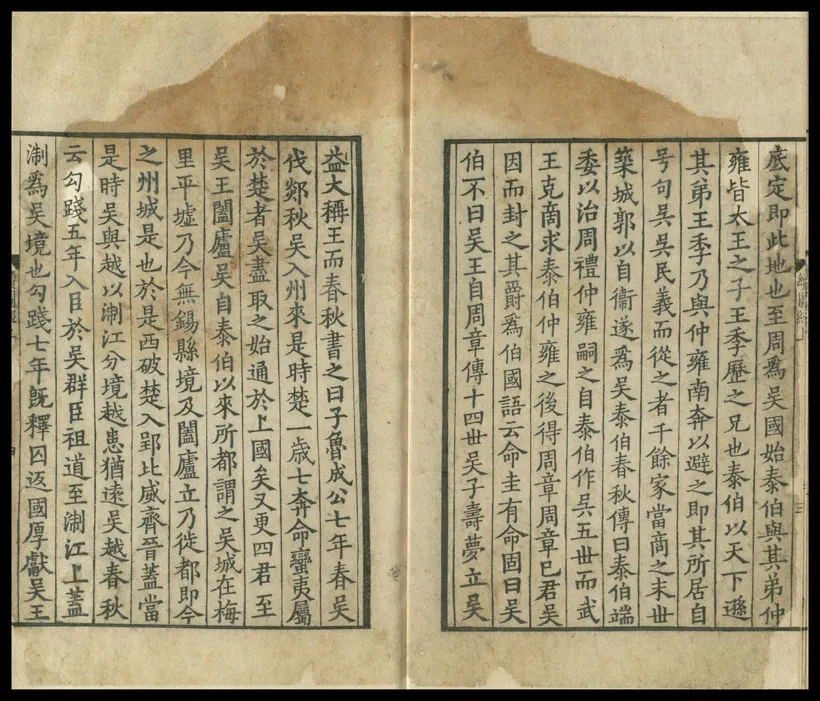 底定即此地也至周爲吳國始泰伯與其弟仲
雍皆太王之子王季歷之兄也泰伯以天下遜
其弟王季乃與仲雍南奔以避之即其所居自
号句吳吳民義而從之者千餘家當商之末世
築城郭以自衞遂爲吳泰伯春秋傳曰泰伯端
委以治周禮仲雍嗣之自泰伯作吳五世而武
王克商求泰伯仲雍之後得周章周章已君吳
因而封之其爵爲伯國語云命圭有命固曰吳
伯不曰吳王自周章傳十四世吳子壽夢立吳
益大稱王而春秋書之曰子魯成公七年春吳
伐郯秋吳入州來是時楚一歲七奔命蠻夷屬
於楚者吳盡取之始通於上國矣又更四君至
吳王闔廬吳自泰伯以來所都謂之吳城在梅
里平墟乃今無錫縣境及闔廬立乃徙都即今
之州城是也於是西破楚入郢北威齊晉蓋當
是時吳與越以淛江分境越患猶遠吳越春秋
云勾踐五年入臣於吳群臣祖道至淛江上蓋
淛爲吳境也勾踐七年旣釋囚返國厚獻吳王